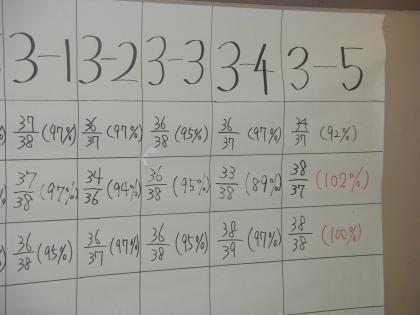 3-1 3-2 3-3 3-4 3-5
37/38 (97%) 36/37 (97%) 36/38 (95%) 36/37 (97%) 34/37 (92%)
37/38 (97%) 34/36 (94%) 36/38 (95%) 33/38 (89%) 38/37 (102%)
36/38 (95%) 36/37 (97%) 36/38 (95%) 38/39 (97%) 38/38 (100%)